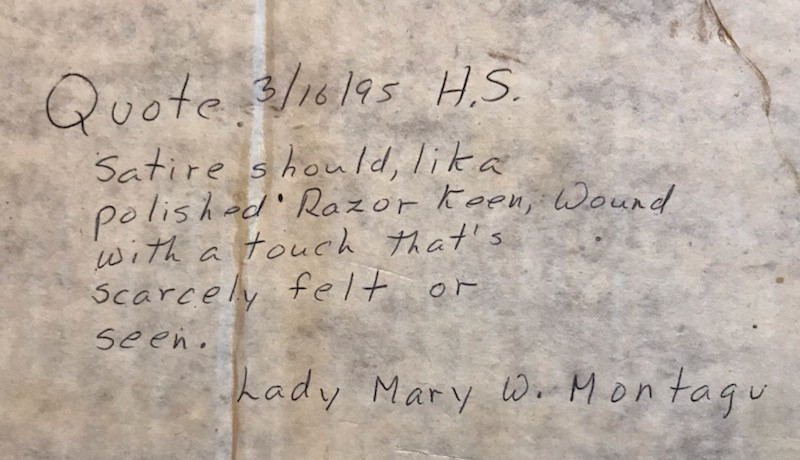 Quote. 3/16/95 H.S.
Satire should, lik a
polished Razor keen, Wound
with a touch that's
scarcely felt or
seen.
Lady Mary W. Montagu